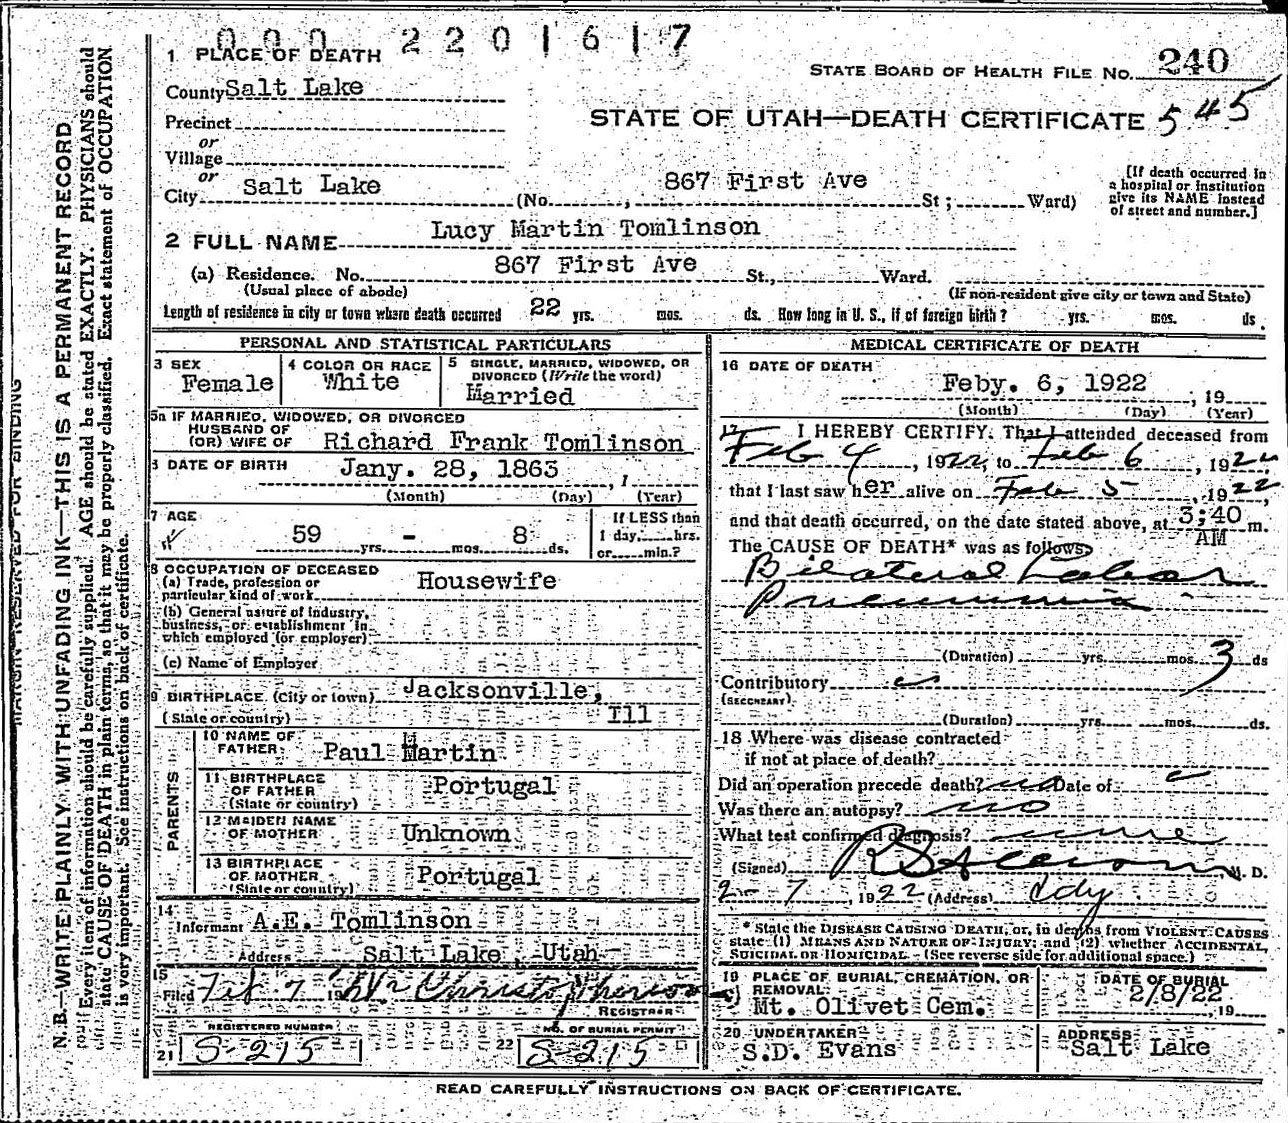 000 2201617
1 PLACE OF DEATH
STATE BOARD OF HEALTH FILE NO. 240
County Salt Lake
STATE OF UTAH—DEATH CERTIFICATE 545
Precinct
or
Village
or
City Salt Lake (No. 867 First Ave St; Ward)
[If death occurred in a hospital or institution give its NAME instead of street and number.]
2 FULL NAME Lucy Martin Tomlinson
(a) Residence. No. 867 First Ave St., Ward.
(Usual place of abode) (If non-resident give city or town and State)
Length of residence in city or town where death occurred 22 yrs. mos. ds. How long in U. S., if of foreign birth? yrs. mos. ds.
PERSONAL AND STATISTICAL PARTICULARS
3 SEX Female
4 COLOR OR RACE White
5 SINGLE, MARRIED, WIDOWED, OR DIVORCED (Write the word) Married
5a IF MARRIED, WIDOWED, OR DIVORCED
HUSBAND OF
(OR) WIFE OF Richard Frank Tomlinson
DATE OF BIRTH Jany. 28, 1863, 1
(Month) (Day) (Year)
7 AGE 59 yrs. - mos. 8 ds.
If LESS than 1 day,....hrs. or....min.?
8 OCCUPATION OF DECEASED
(a) Trade, profession or particular kind of work Housewife
(b) General nature of industry, business, or establishment in which employed (or employer)
(c) Name of Employer
9 BIRTHPLACE (City or town) Jacksonville,
(State or country) Ill
PARENTS
10 NAME OF FATHER Paul Martin
11 BIRTHPLACE OF FATHER (State or country) Portugal
12 MAIDEN NAME OF MOTHER Unknown
13 BIRTHPLACE OF MOTHER (State or country) Portugal
14 Informant A.E. Tomlinson
Address Salt Lake, Utah
15 Filed Feb 7 19
REGISTRAR
REGISTERED NUMBER
21 S-215
NO. OF BURIAL PERMIT
22 S-215
MEDICAL CERTIFICATE OF DEATH
16 DATE OF DEATH
Feby. 6, 1922, 19
(Month) (Day) (Year)
17 I HEREBY CERTIFY, That I attended deceased from
Feb 4, 1922, to Feb 6, 1922
that I last saw her alive on Feb 5, 1922,
and that death occurred, on the date stated above, at 3;40 AM m.
The CAUSE OF DEATH* was as follows:
Bilateral Lobar
Pneumonia
(Duration) yrs. mos. 3 ds
Contributory
(SECONDARY)
(Duration) yrs. mos. ds.
18 Where was disease contracted
if not at place of death?
Did an operation precede death? no Date of
Was there an autopsy? no
What test confirmed diagnosis?
(Signed) M. D.
2-7, 1922 (Address) Cdy
* State the DISEASE CAUSING DEATH, or, in deaths from VIOLENT CAUSES
state (1) MEANS AND NATURE OF INJURY; and (2) whether ACCIDENTAL,
SUICIDAL OR HOMICIDAL. (See reverse side for additional space.)
19 PLACE OF BURIAL, CREMATION, OR REMOVAL
Mt. Olivet Cem.
DATE OF BURIAL
2/8/22, 19
20 UNDERTAKER
S.D. Evans
ADDRESS
Salt Lake
READ CAREFULLY INSTRUCTIONS ON BACK OF CERTIFICATE.
MARGIN RESERVED FOR BINDING
N. B.—WRITE PLAINLY WITH UNFADING INK—THIS IS A PERMANENT RECORD
Every item of information should be carefully supplied. AGE should be stated EXACTLY. PHYSICIANS should
state CAUSE OF DEATH in plain terms, so that it may be properly classified. Exact statement of OCCUPATION
is very important. See instructions on back of certificate.